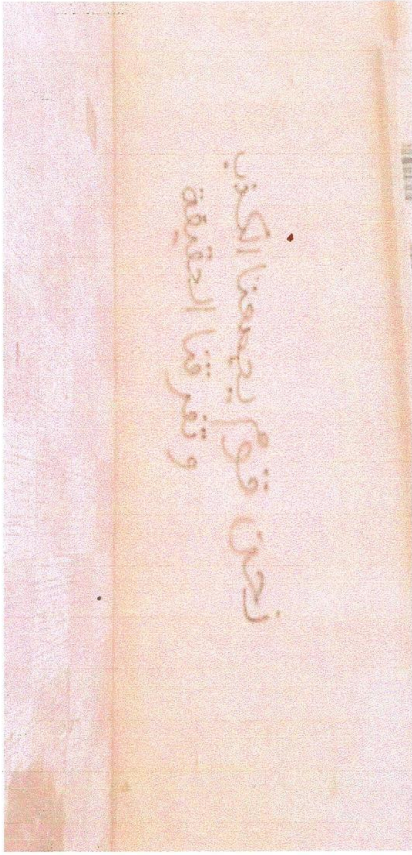 نحن قوم يجمعنا الكذب
و تفرقنا الحقيقة